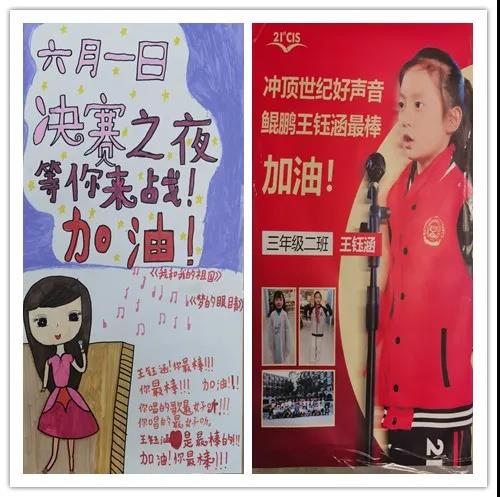 六月一日
决赛之夜
等你来战!
加油!
《我和我的祖国》
《梦的眼睛》
王钰涵!你最棒!!!
你最棒!!! 加油!!
你唱的歌最好听!!!
你唱的最好听。
王钰涵是最棒的!!!
加油!你最棒!!!
21stCIS
冲顶世纪好声音
鲲鹏王钰涵最棒
加油!
三年级二班 王钰涵
21